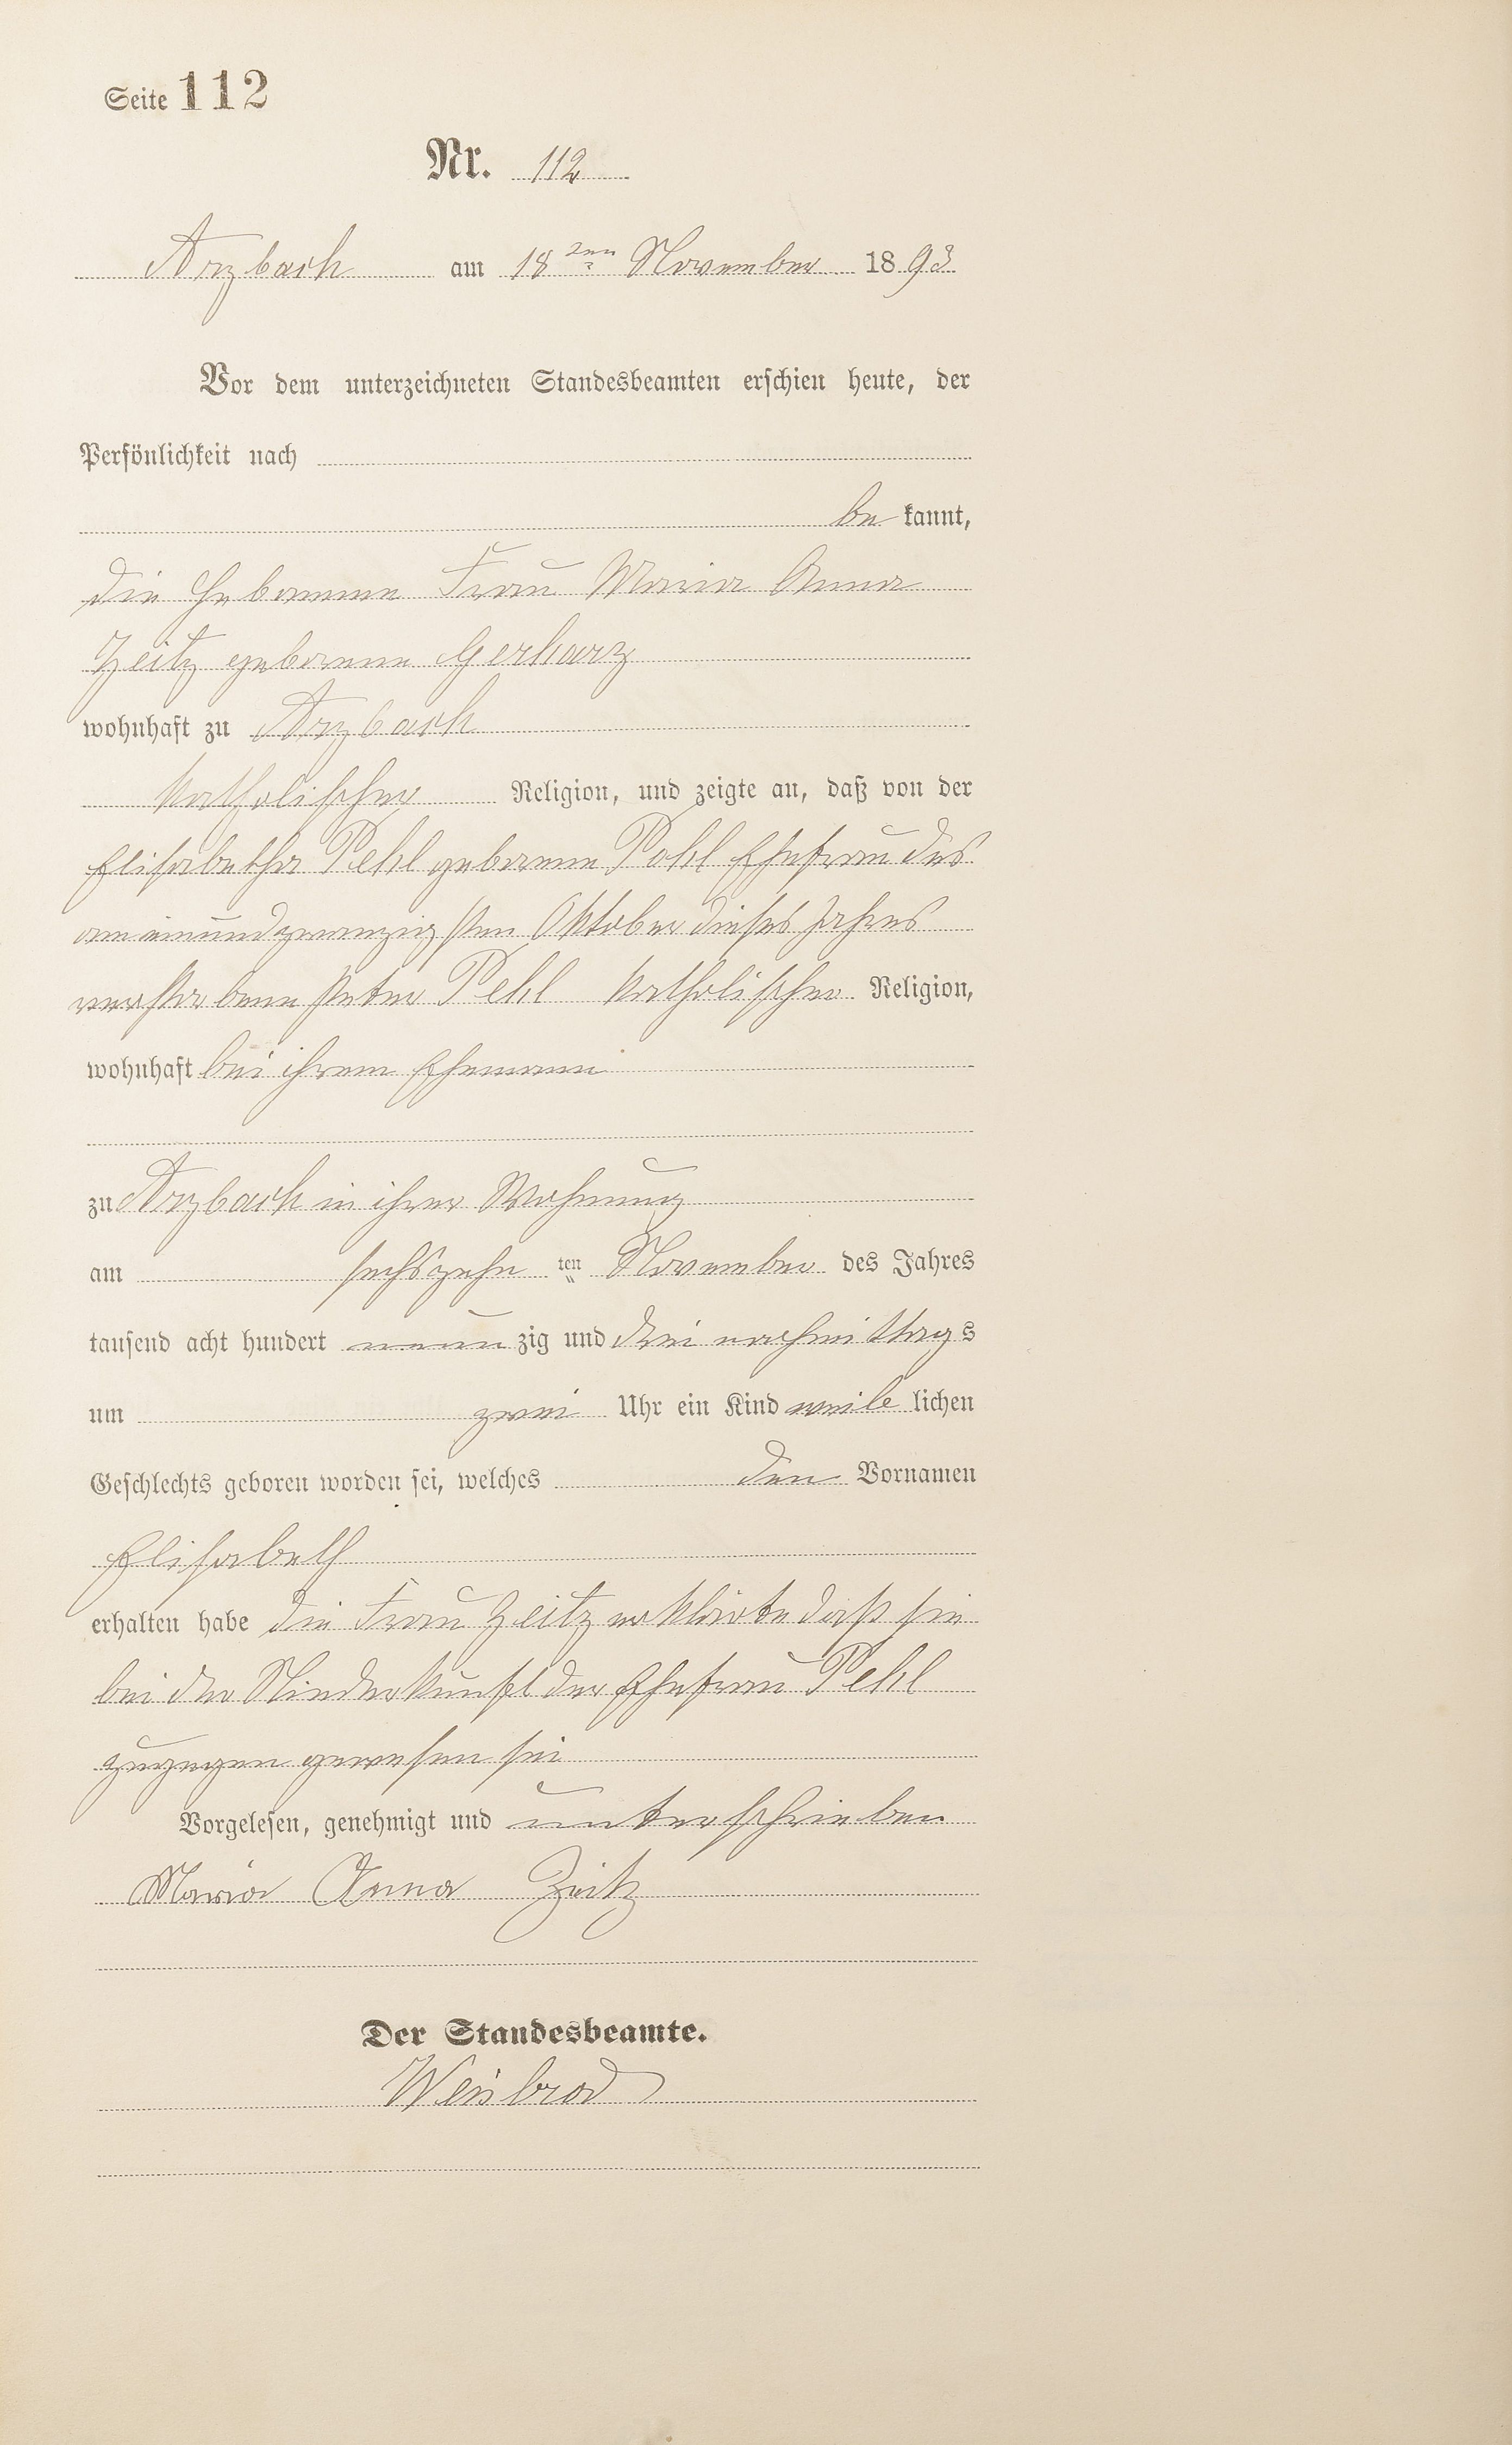 Seite 112
Nr. 112
Arzbach am 18ten November 1893
Vor dem unterzeichneten Standesbeamten erschien heute, der
Persönlichkeit nach
be kannt,
die Hebamme Frau Maria Anna
Zeitz geborene Gerharz
wohnhaft zu Arzbach
katholischer Religion, und zeigte an, daß von der
Elisabetha Pehl geborene Pohl Ehefrau des
am einundzwanzigsten Oktober dieses Jahres
verstorbene Peter Pehl katholischer Religion,
wohnhaft bei ihrem Ehemann
zu Arzbach in ihrer Wohnung
am sechszehn ten November des Jahres
tausend acht hundert neun zig und drei nachmittags
um zwei Uhr ein Kind weib lichen
Geschlechts geboren worden sei, welches den Vornamen
Elisabeth
erhalten habe die Frau Zeitz erklärte daß sie
bei der Niederkunft der Ehefrau Pehl
zugegen gewesen sei
Vorgelesen, genehmigt und unterschrieben
Maria Anna Zeitz
Der Standesbeamte.
Weisbrod